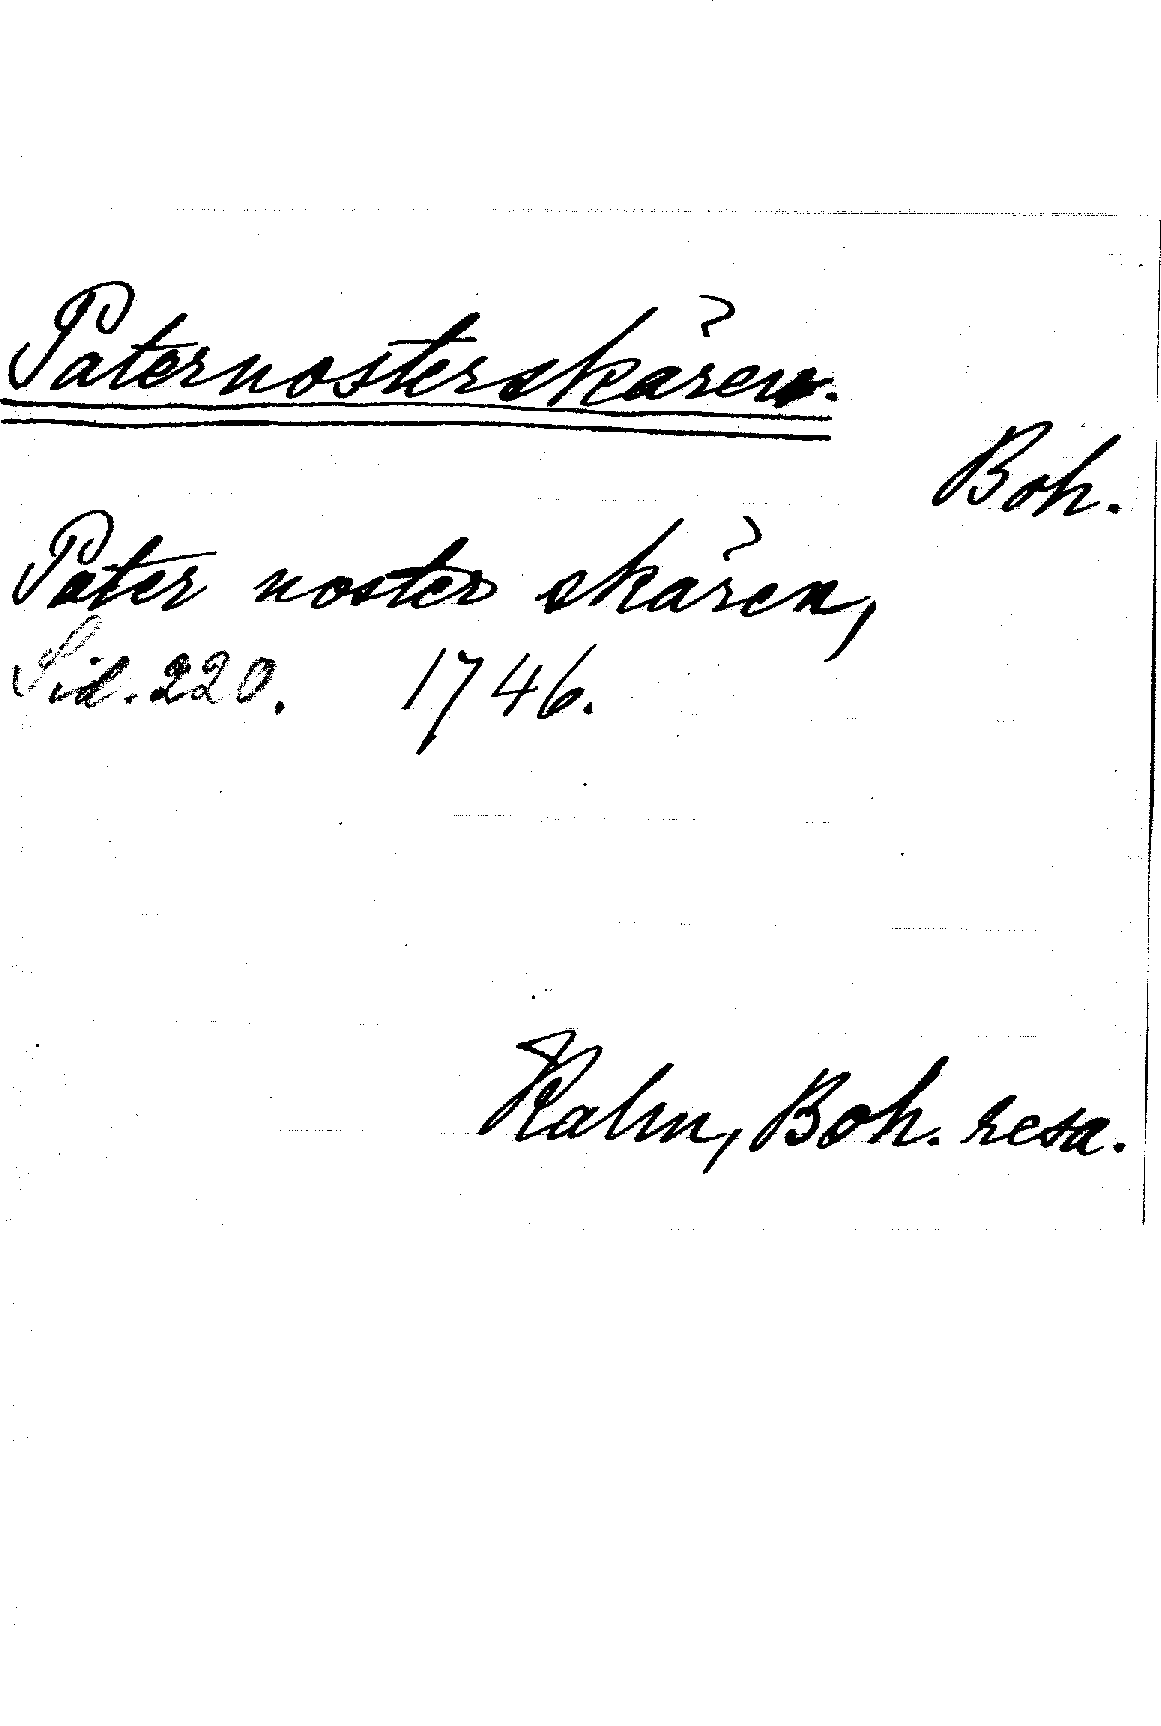 Paternosterskären.
Boh.
Pater noster skären,
Sid. 220. 1746.
Kalm, Boh. resa.